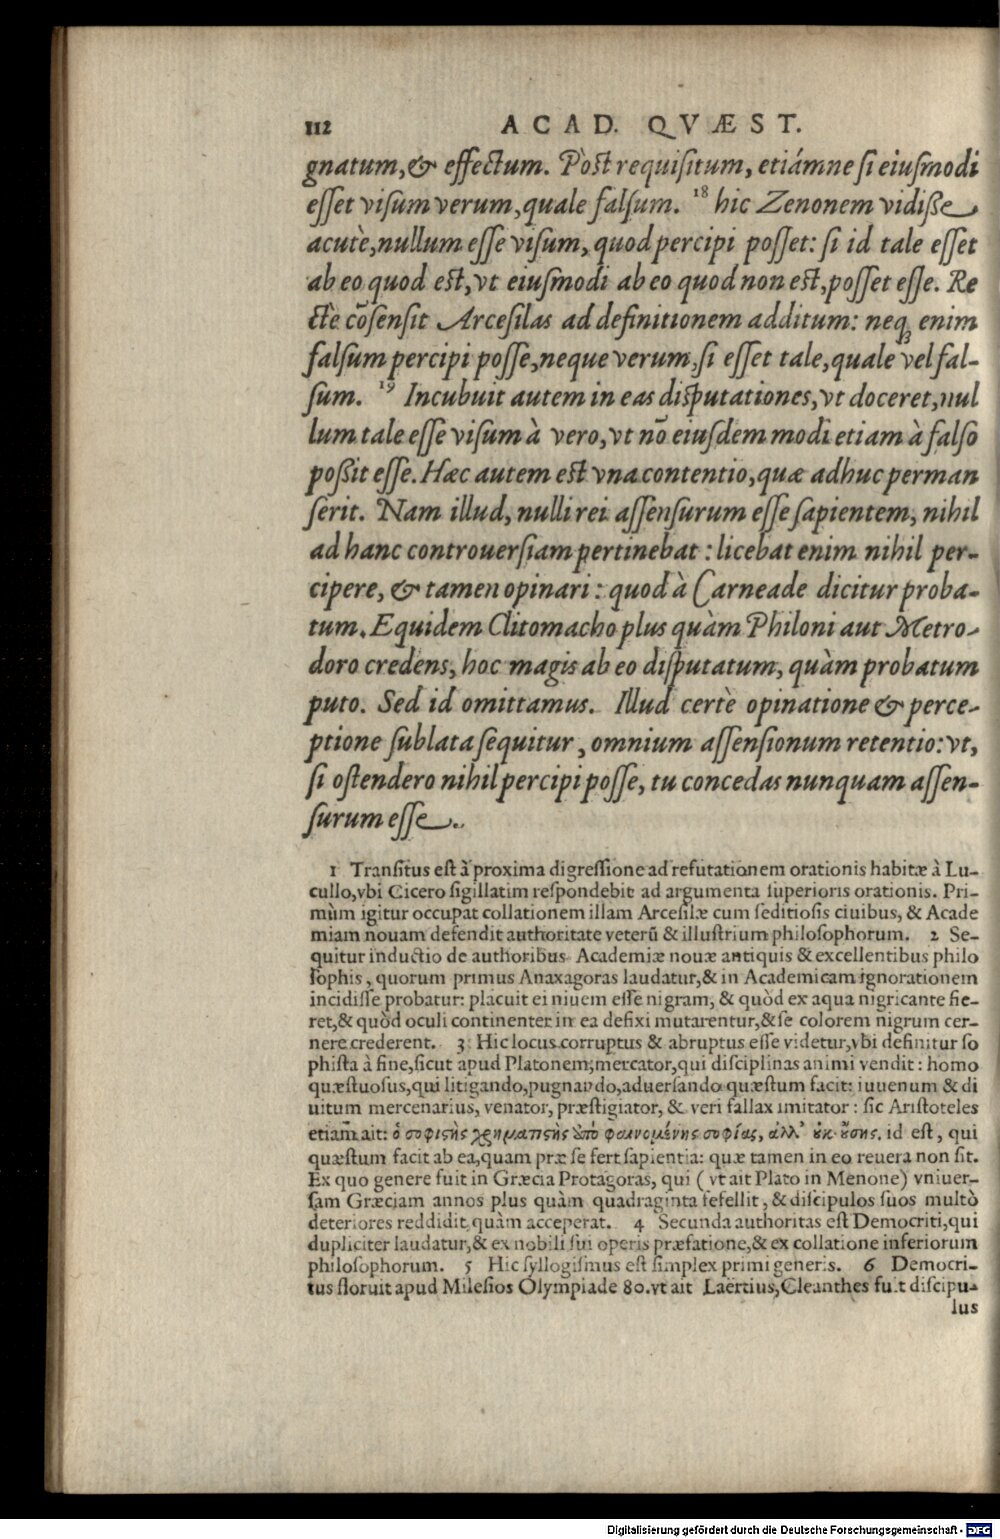 112 ACAD. QVÆST.
gnatum,& effectum. Pòst requisitum, etiámne si eiusmodi
esset visum verum, quale falsum. 18 hic Zenonem vidiße
acutè, nullum esse visum, quod percipi posset: si id tale esset
ab eo quod est, vt eiusmodi ab eo quod non est, posset esse. Re
ctè cõsensit Arcesilas ad definitionem additum: neq; enim
falsum percipi posse, neque verum, si esset tale, quale vel fal-
sum. 19 Incubuit autem in eas disputationes, vt doceret, nul
lum tale esse visum à vero, vt nõ eiusdem modi etiam à falso
poßit esse. Hæc autem est vna contentio, quæ adhuc perman
serit. Nam illud, nulli rei assensurum esse sapientem, nihil
ad hanc controuersiam pertinebat : licebat enim nihil per-
cipere, & tamen opinari : quod à Carneade dicitur proba-
tum. Equidem Clitomacho plus quàm Philoni aut Metro-
doro credens, hoc magis ab eo disputatum, quàm probatum
puto. Sed id omittamus. Illud certè opinatione & perce-
ptione sublata sequitur, omnium assensionum retentio: vt,
si ostendero nihil percipi posse, tu concedas nunquam assen-
surum esse.
1 Transitus est à proxima digressione ad refutationem orationis habitæ à Lu-
cullo, vbi Cicero sigillatim respondebit ad argumenta superioris orationis. Pri-
mùm igitur occupat collationem illam Arcesilæ cum seditiosis ciuibus, & Acade
miam nouam defendit authoritate veterũ & illustrium philosophorum. 2 Se-
quitur inductio de authoribus Academiæ nouæ antiquis & excellentibus philo
sophis, quorum primus Anaxagoras laudatur, & in Academicam ignorationem
incidisse probatur: placuit ei niuem esse nigram, & quòd ex aqua nigricante fie-
ret, & quòd oculi continenter in ea defixi mutarentur, & se colorem nigrum cer-
nere crederent. 3 Hic locus corruptus & abruptus esse videtur, vbi definitur so
phista à fine, sicut apud Platonem; mercator, qui disciplinas animi vendit : homo
quæstuosus, qui litigando, pugnando, aduersando quæstum facit: iuuenum & di
uitum mercenarius, venator, præstigiator, & veri fallax imitator : sic Aristoteles
etiam ait: ὁ σοφιστὴς χρηματιστὴς ἀπὸ φαινομένης σοφίας, ἀλλ’ οὐκ οὔσης. id est, qui
quæstum facit ab ea, quam præ se fert sapientia: quæ tamen in eo reuera non sit.
Ex quo genere fuit in Græcia Protagoras, qui ( vt ait Plato in Menone) vniuer-
sam Græciam annos plus quàm quadraginta fefellit, & discipulos suos multò
deteriores reddidit, quàm acceperat. 4 Secunda authoritas est Democriti, qui
dupliciter laudatur, & ex nobili sui operis præfatione, & ex collatione inferiorum
philosophorum. 5 Hic syllogismus est simplex primi generis. 6 Democri-
tus floruit apud Milesios Olympiade 80. vt ait Laërtius, Cleanthes fuit discipu-
lus
Digitalisierung gefördert durch die Deutsche Forschungsgemeinschaft - DFG